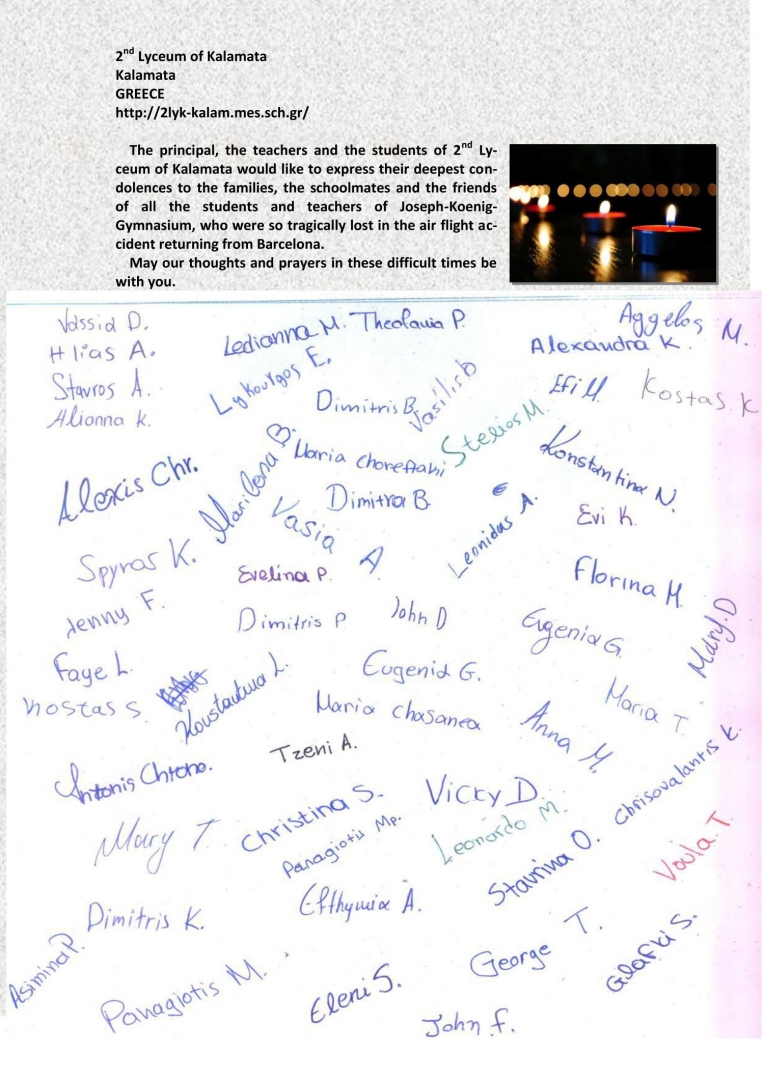 2nd Lyceum of Kalamata
Kalamata
GREECE
http://2lyk-kalam.mes.sch.gr/
The principal, the teachers and the students of 2nd Ly-
ceum of Kalamata would like to express their deepest con-
dolences to the families, the schoolmates and the friends
of all the students and teachers of Joseph-Koenig-
Gymnasium, who were so tragically lost in the air flight ac-
cident returning from Barcelona.
May our thoughts and prayers in these difficult times be
with you.
Vassia D.
Ledianna M.
P.
Aggelos M.
Hlias A.
Alexandra K.
Stavros A.
Lykourgos E.
Vasilis B
Efi M.
Kostas K
Alionna K.
Dimitris B.
Stelios M.
Marilena B
Maria choreftahi
Konstantina N.
Alexis Chr.
Dimitra B.
Leonidas A.
Evi K.
Vasia A
Spyros K.
Evelina P.
Florina M.
Jenny F.
Dimitris P
John D
Eugenia G.
Mary.D
Faye L.
Konstantina L.
Eugenia G.
Kostas S.
Maria chasanea
Anna M.
Maria T.
Antonis Chrono.
Tzeni A.
Chrisovalantis K.
Mary T.
Christina S.
Vicky D.
Panagiotis Mp.
Leonardo M.
Stavrina O.
Voula T.
Dimitris K.
Efthymia A.
Asimina P.
George T.
Glafki S.
Panagiotis M.
Eleni S.
John f.